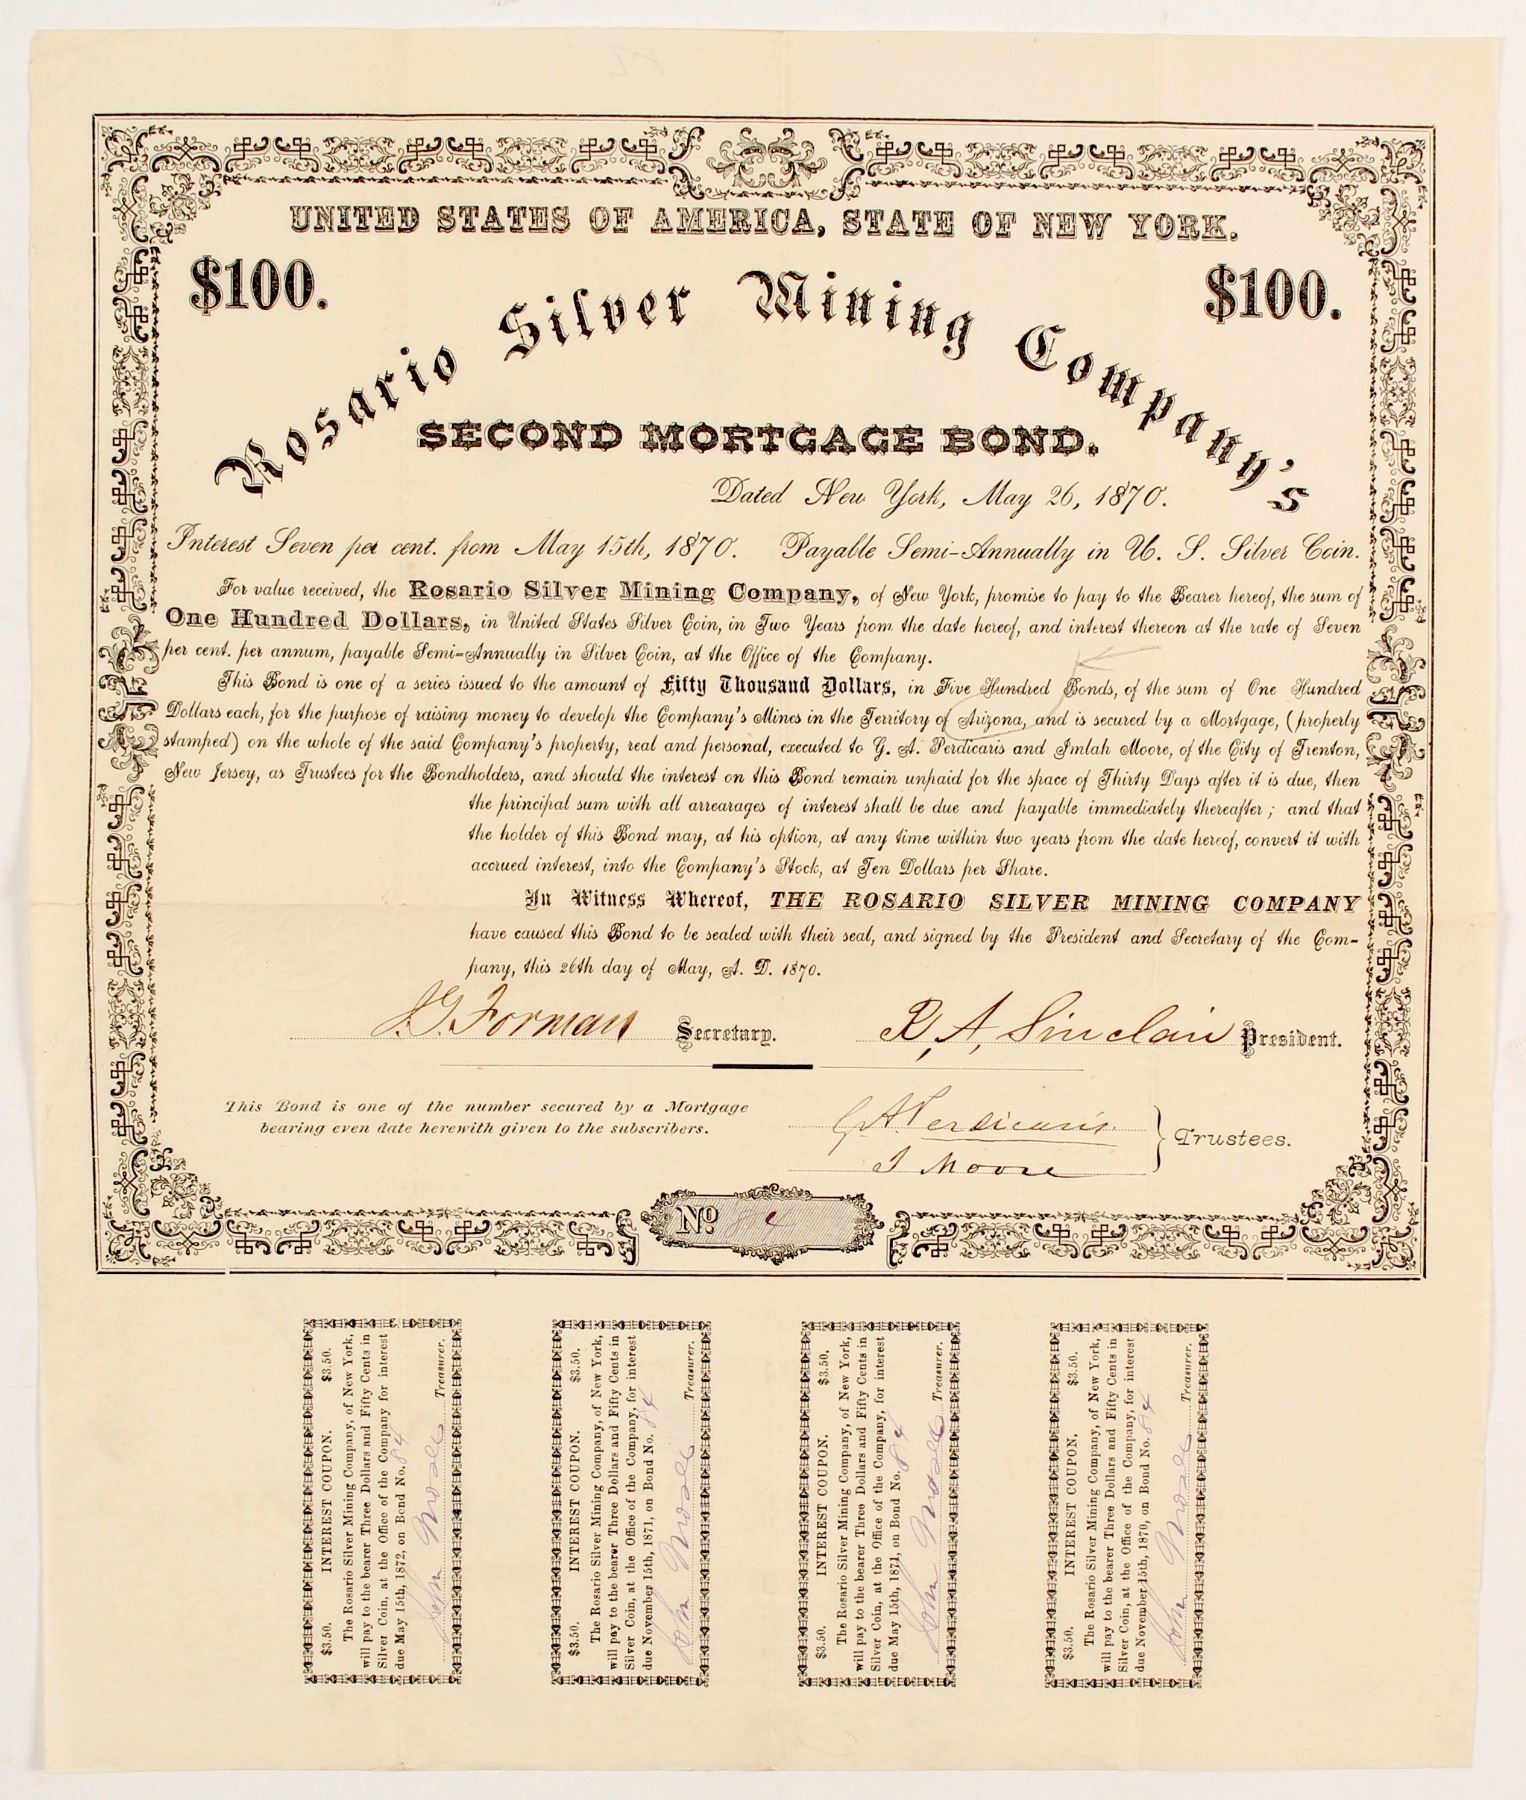 UNITED STATES OF AMERICA, STATE OF NEW YORK.
$100.
$100.
Rosario Silver Mining Company's
SECOND MORTGAGE BOND.
Dated New York, May 26, 1870.
Interest Seven per cent. from May 15th, 1870. Payable Semi-Annually in U. S. Silver Coin.
For value received, the Rosario Silver Mining Company, of New York, promise to pay to the Bearer hereof, the sum of
One Hundred Dollars, in United States Silver Coin, in Two Years from the date hereof, and interest thereon at the rate of Seven
per cent. per annum, payable Semi-Annually in Silver Coin, at the Office of the Company.
This Bond is one of a series issued to the amount of Fifty Thousand Dollars, in Five Hundred Bonds, of the sum of One Hundred
Dollars each, for the purpose of raising money to develop the Company's Mines in the Territory of Arizona, and is secured by a Mortgage, (properly
stamped) on the whole of the said Company's property, real and personal, executed to G. A. Perdicaris and Imlah Moore, of the City of Trenton,
New Jersey, as Trustees for the Bondholders, and should the interest on this Bond remain unpaid for the space of Thirty Days after it is due, then
the principal sum with all arrearages of interest shall be due and payable immediately thereafter; and that
the holder of this Bond may, at his option, at any time within two years from the date hereof, convert it with
accrued interest, into the Company's Stock, at Ten Dollars per Share.
In Witness Whereof, THE ROSARIO SILVER MINING COMPANY
have caused this Bond to be sealed with their seal, and signed by the President and Secretary of the Com-
pany, this 26th day of May, A. D. 1870.
J. G. Forman Secretary. R. A. Sinclair President.
This Bond is one of the number secured by a Mortgage
bearing even date herewith given to the subscribers.
G A Perdicaris
I Moore
Trustees.
No 84
$3.50. INTEREST COUPON. $3.50.
The Rosario Silver Mining Company, of New York,
will pay to the bearer Three Dollars and Fifty Cents in
Silver Coin, at the Office of the Company for interest
due May 15th, 1872, on Bond No. 84
John Treasurer.
$3.50. INTEREST COUPON. $3.50.
The Rosario Silver Mining Company, of New York,
will pay to the bearer Three Dollars and Fifty Cents in
Silver Coin, at the Office of the Company, for interest
due November 15th, 1871, on Bond No. 84
John Treasurer.
$3.50. INTEREST COUPON. $3.50.
The Rosario Silver Mining Company, of New York,
will pay to the bearer Three Dollars and Fifty Cents in
Silver Coin, at the Office of the Company, for interest
due May 15th, 1871, on Bond No. 84
John Treasurer.
$3.50. INTEREST COUPON. $3.50.
The Rosario Silver Mining Company, of New York,
will pay to the bearer Three Dollars and Fifty Cents in
Silver Coin, at the Office of the Company, for interest
due November 15th, 1870, on Bond No. 84
John Treasurer.